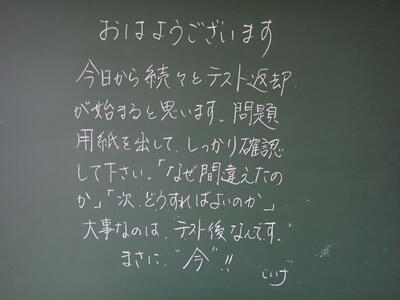 おはようございます
今日から続々とテスト返却
が始まると思います。問題
用紙を出して、しっかり確認
して下さい。「なぜ間違えたの
か」「次、どうすればよいのか」
大事なのは、テスト後なんです。
まさに、"今"!!